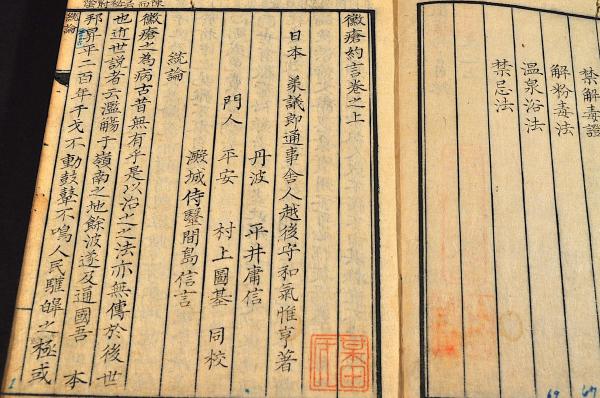 禁解毒證
解粉毒法
溫泉浴法
禁忌法
黴瘡約言卷之上
日本 美議郎通事舍人越後守和氣惟亨著
丹波 平井庸信
門人 平安 村上圖基 同校
澱城侍醫間島信言
統論
黴瘡之為病古昔無有乎是以治之之法亦無傳於後世
也近世說者云濫觴于嶺南之地餘波遂及通國吾 本
邦昇平二百年干戈不動鼓鼙不鳴人民驩皞之極或
統論